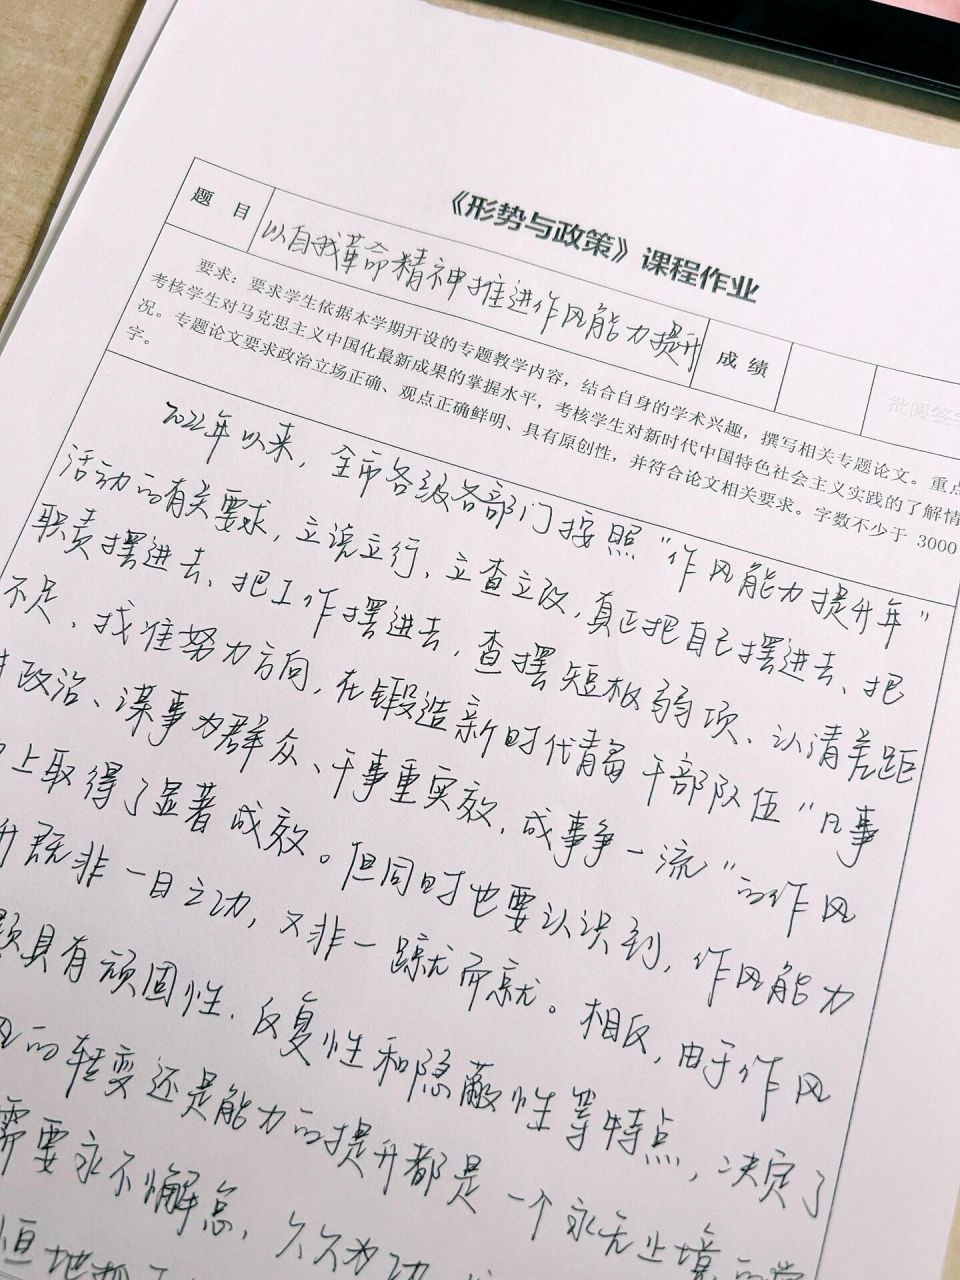 《形势与政策》课程作业
题 目
以自我革命精神推进作风能力提升
成 绩
批阅签字
要求：要求学生依据本学期开设的专题教学内容，结合自身的学术兴趣，撰写相关专题论文。重点
考核学生对马克思主义中国化最新成果的掌握水平，考核学生对新时代中国特色社会主义实践的了解情
况。专题论文要求政治立场正确、观点正确鲜明、具有原创性，并符合论文相关要求。字数不少于 3000
字。
2022年以来，全市各级各部门按照“作风能力提升年”
活动的有关要求，立说立行、立查立改，真正把自己摆进去、把
职责摆进去、把工作摆进去，查摆短板弱项、认清差距
不足、找准努力方向，在锻造新时代青年干部队伍“凡事
政治、谋事为群众、干事重实效、成事争一流”的作风
上取得了显著成效。但同时也要认识到，作风能力
升既非一日之功，又非一蹴而就。相反，由于作风
题具有顽固性、反复性和隐蔽性等特点，决定了
风的转变还是能力的提升都是一个永无止境的
需要永不懈怠、久久为功、
恒地抓